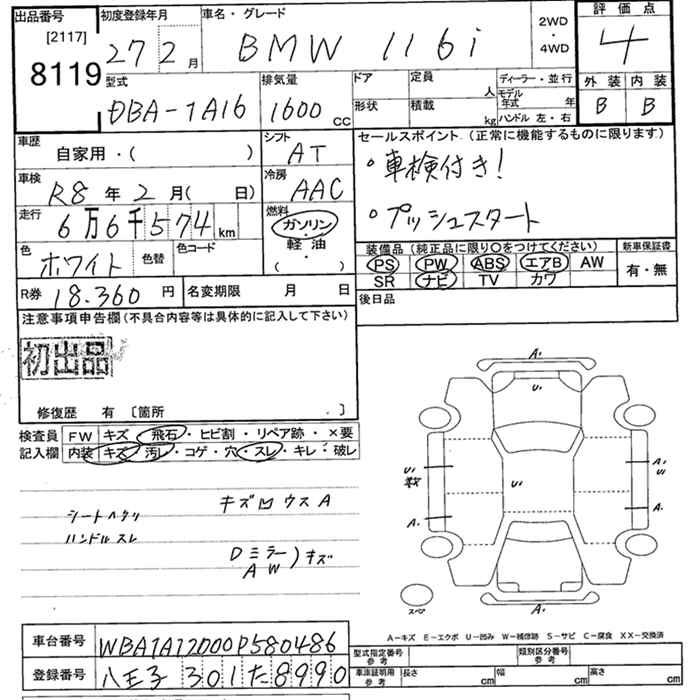 出品番号 初度登録年月 車名・グレード 2WD・4WD 評価点
[2117]
8119 27 2月 BMW 116i 4
型式 排気量 ドア 定員 人 ディーラー・並行 外装 内装
DBA-1A16 1600cc 形状 積載 kg モデル年式 年 B B
ハンドル 左・右
車歴 シフト セールスポイント (正常に機能するものに限ります)
自家用・( ) AT ・車検付き!
車検 冷房
R8年2月( 日) AAC
走行 燃料 ・プッシュスタート
6万6千574km ガソリン
軽油
( )
色 色替 色コード 装備品(純正品に限り○をつけてください) 新車保証書
ホワイト PS PW ABS エアB AW 有・無
SR ナビ TV カワ
R券 18.360円 名変期限 月 日 後日品
注意事項申告欄(不具合内容等は具体的に記入して下さい)
初出品
修復歴 有 [箇所 ]
検査員 FW キズ・飛石・ヒビ割・リペア跡・×要
記入欄 内装 キズ・汚レ・コゲ・穴・スレ・キレ・破レ
キズ凹ウスA
シートヘタリ
ハンドルスレ
Dミラー)キズ
AW
A1
U1
U1 A1
数 U1
U1
A1 A1
スペア
A1
A-キズ E-エクボ U-凹み W-補修跡 S-サビ C-腐食 XX-交換済
車台番号 WBA1A12000P580486 型式指定番号 参考 類別区分番号 参考
登録番号 八王子 301 た 8990 車庫証明用 参考 長さ cm 幅 cm 高さ cm